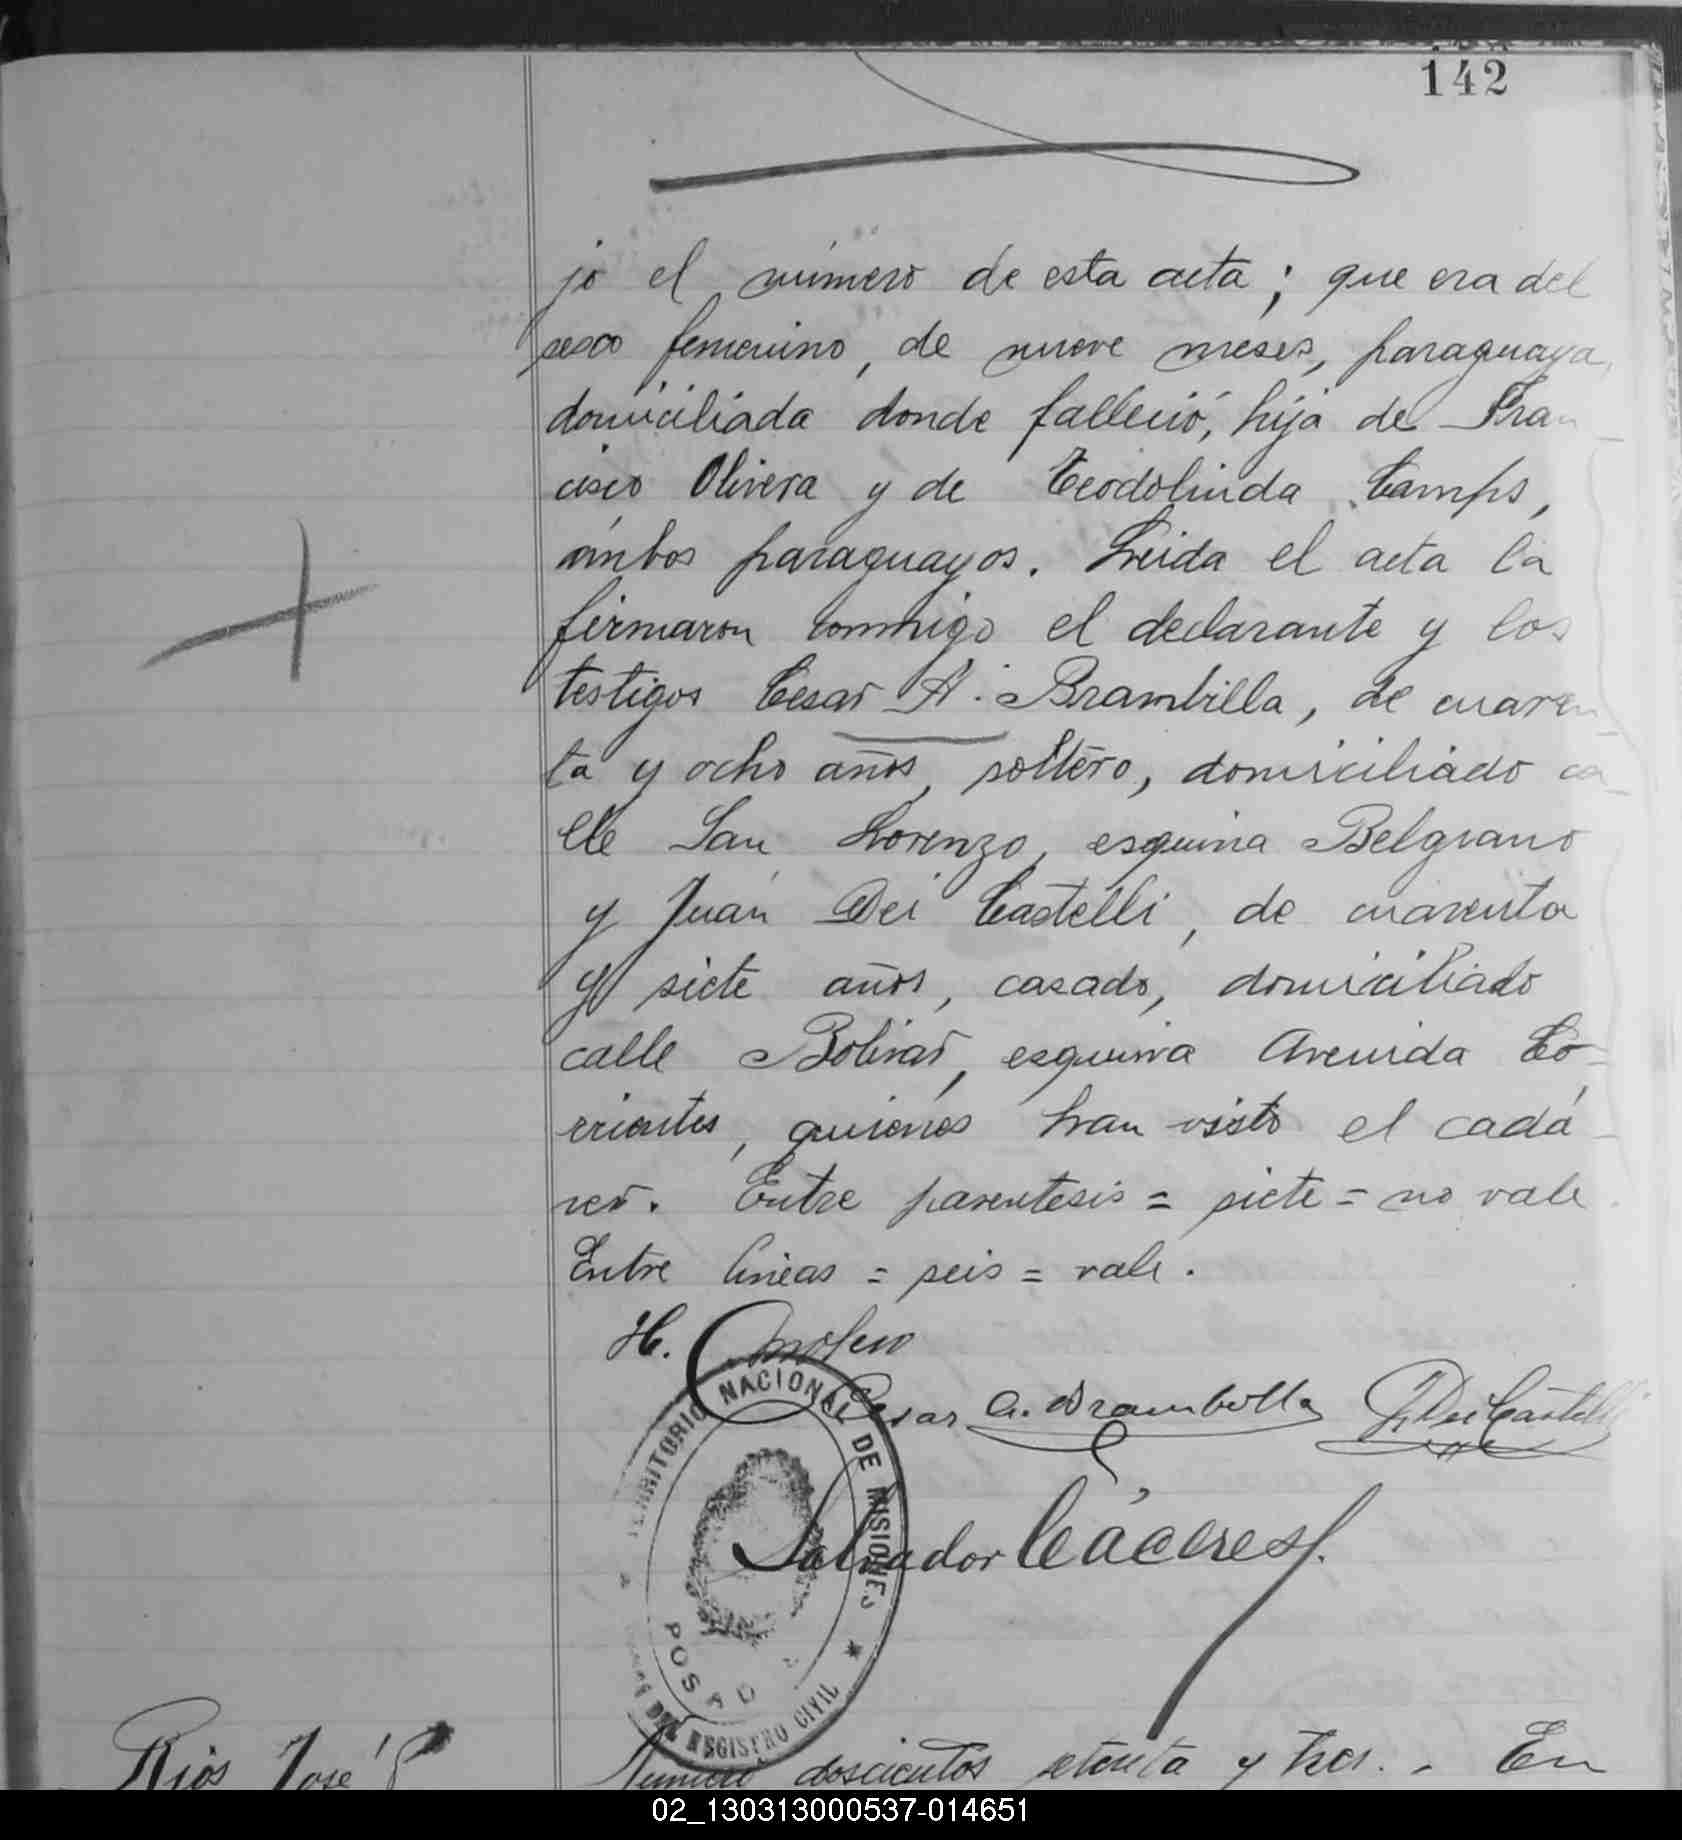 142
jo el número de esta acta; que era del
sexo femenino, de nueve meses, paraguaya,
domiciliada donde falleció, hija de Fran
cisco Olivera y de Teodolinda Camps,
ambos paraguayos. Leida el acta la
firmaron conmigo el declarante y los
testigos Cesar A. Brambilla, de cuaren
ta y ocho años, soltero, domiciliado ca
lle San Lorenzo, esquina Belgrano
y Juan Dei Castelli, de cuarenta
y siete años, casado, domiciliado
calle Bolivar, esquina Avenida Co-
rrientes, quienes han visto el cadá-
ver. Entre parentesis = siete = no vale.
Entre lineas = seis = vale.
H.
Cesar A. Brambilla J Dei Castelli
TERRITORIO NACIONAL DE MISIONES
Salvador Cáceres
POSAD
DEL REGISTRO CIVIL
Rios José
Numero doscientos setenta y tres. - En
02_130313000537-014651